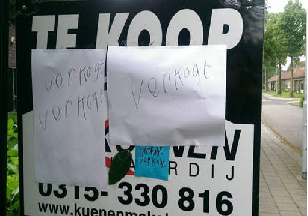 TE KOOP
verkogt
verkogt
verkogt
NEN
ARDIJ
0315- 330 816
www.kuenenmake